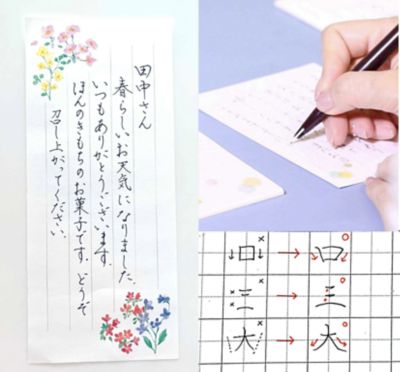 田中さん
春らしいお天気になりました。
いつもありがとうございます。
ほんのきもちのお菓子です。どうぞ
召し上がってください。
口 × → 口 ○
三 × → 三 ○
大 × → 大 ○